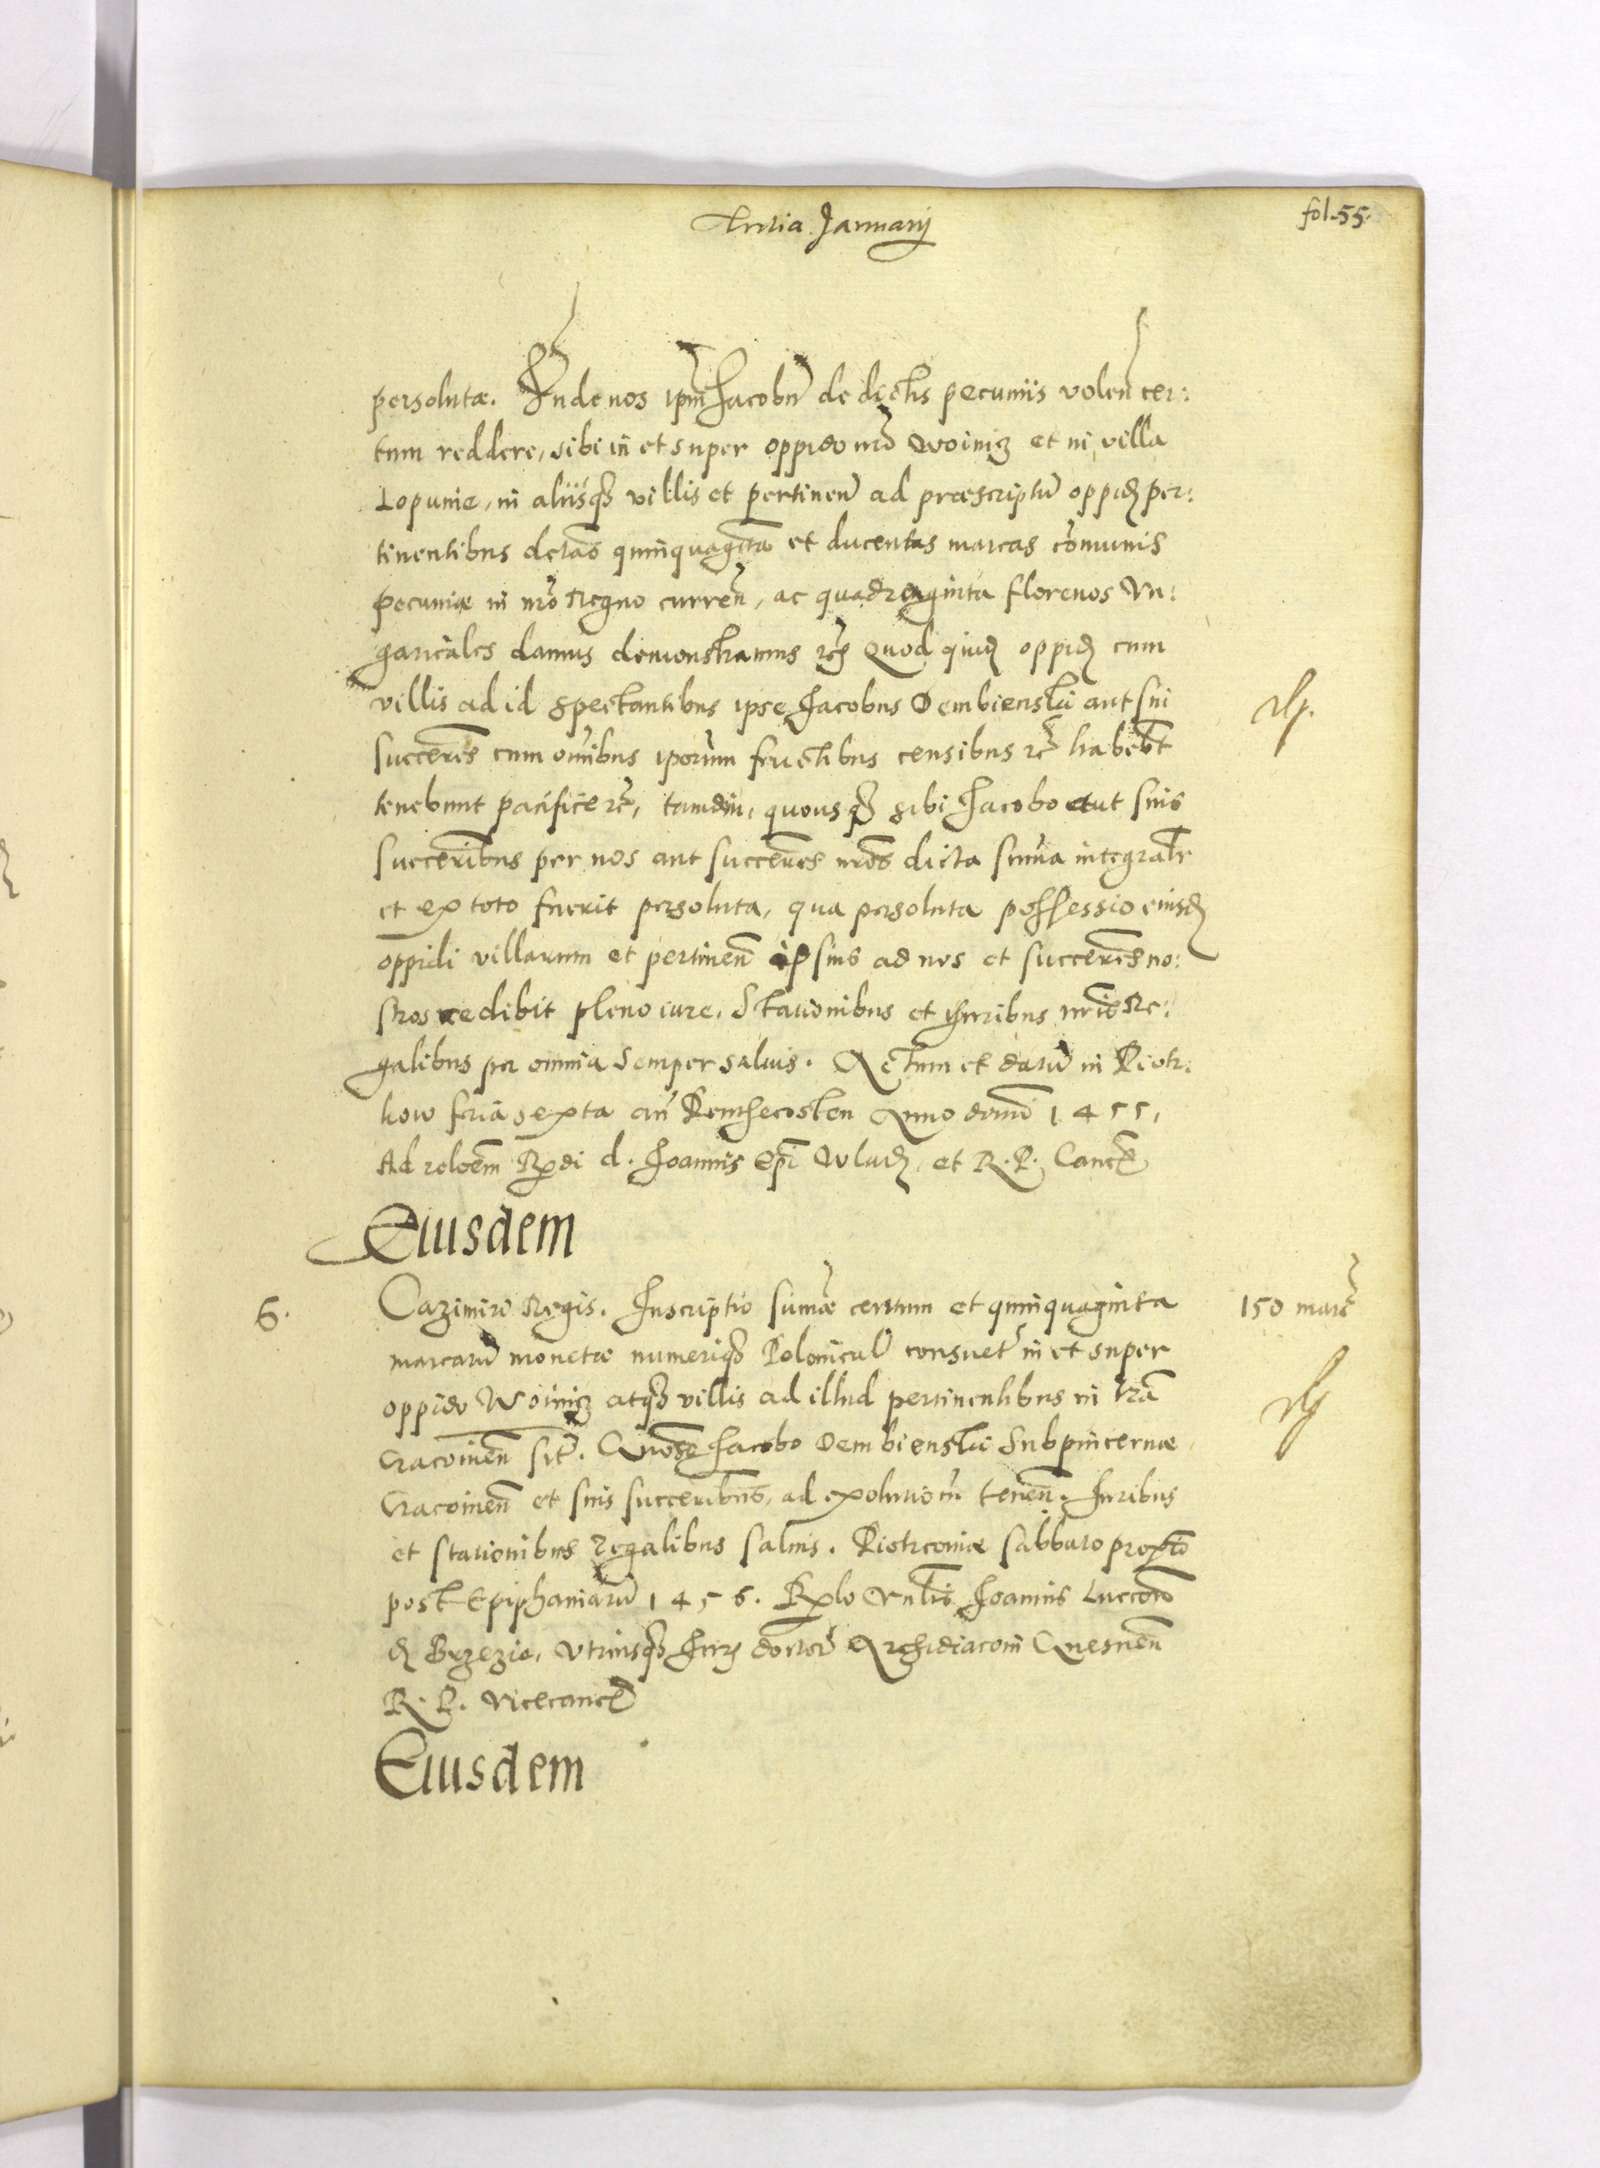 fol. 55.
Tertia Januarij
persolutæ. Inde nos ipm̃ Jacobũ de dictis pecuniis volen̄ cer:
tum reddere, sibi in et super oppido nrō Woinicz et in villa
Lopunie, in aliisq₃ villis et pertinen̄ ad præscriptū oppid̄ per:
tinentibus quinquaginta et ducentas marcas cōmunis
pecuniæ in nrō Regno curren̄, ac quadringinta florenos Vn:
garicales damus demonstramus rc̄ Quod quid̄ oppid̄ cum
villis ad id spectantibus ipse Jacobus Dembienski aut sui
succeres̄ cum om̄ibus ipsorum fructibus censibus rc̄ habebt̄
tenebunt pacifice rc̄, tamdiu, quousq₃ sibi Jacobo aut suis
succerib̄us per nos aut succeres̄ nrōs dicta sum̄a integralr̄
et ex toto fuerit persoluta, qua persoluta possessio eiusd̄
oppidi villarum et pertinen̄ ipsius ad nos et succeres̄ no:
stros redibit pleno iure. Stationibus et iuribus nrīs Re:
galibus per omnia semper saluis. Actum et datū in Piotr:
kow feria sexta an̄ Penthecosten Anno domī 1455,
Ad reloēm Rx̄di d. Joannis Epī Wlad̄, et R. P. Cancel̄
Eiusdem
6. Cazimiri Regis. Inscriptio sum̄æ centum et quinquaginta 150 marc̄
marcarū monetæ numeriq₃ Polonical̄ consuet̄ in et super
oppido Woinicz atq₃ villis ad illud pertinentibus in trā
Cracouien̄ sit̄. Jacobo Dembienski Subpincernæ
Cracouien̄ et suis succerib̄us, ad exolutiom̄ tenen̄. Iuribus
et stationibus regalibus saluis. Piotrcouiæ sabbato proxō
post Epiphaniarū 1456. Rx̄lo Vnlīs Joannis Lucconis
d̄ Brzezie, Vtriusq₃ Juris doctor̄ Archidiaconi Gnesnen̄
R. P. Vicecancel̄
Eiusdem